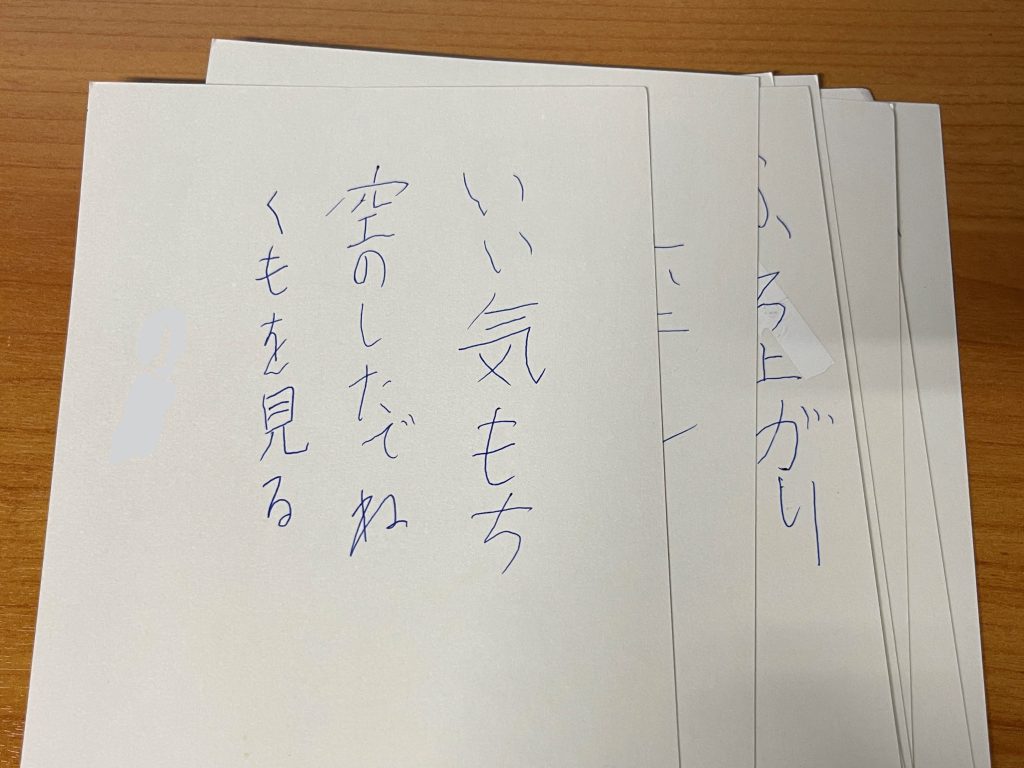 いい気もち
空のしたでね
くもを見る
ろ上がり